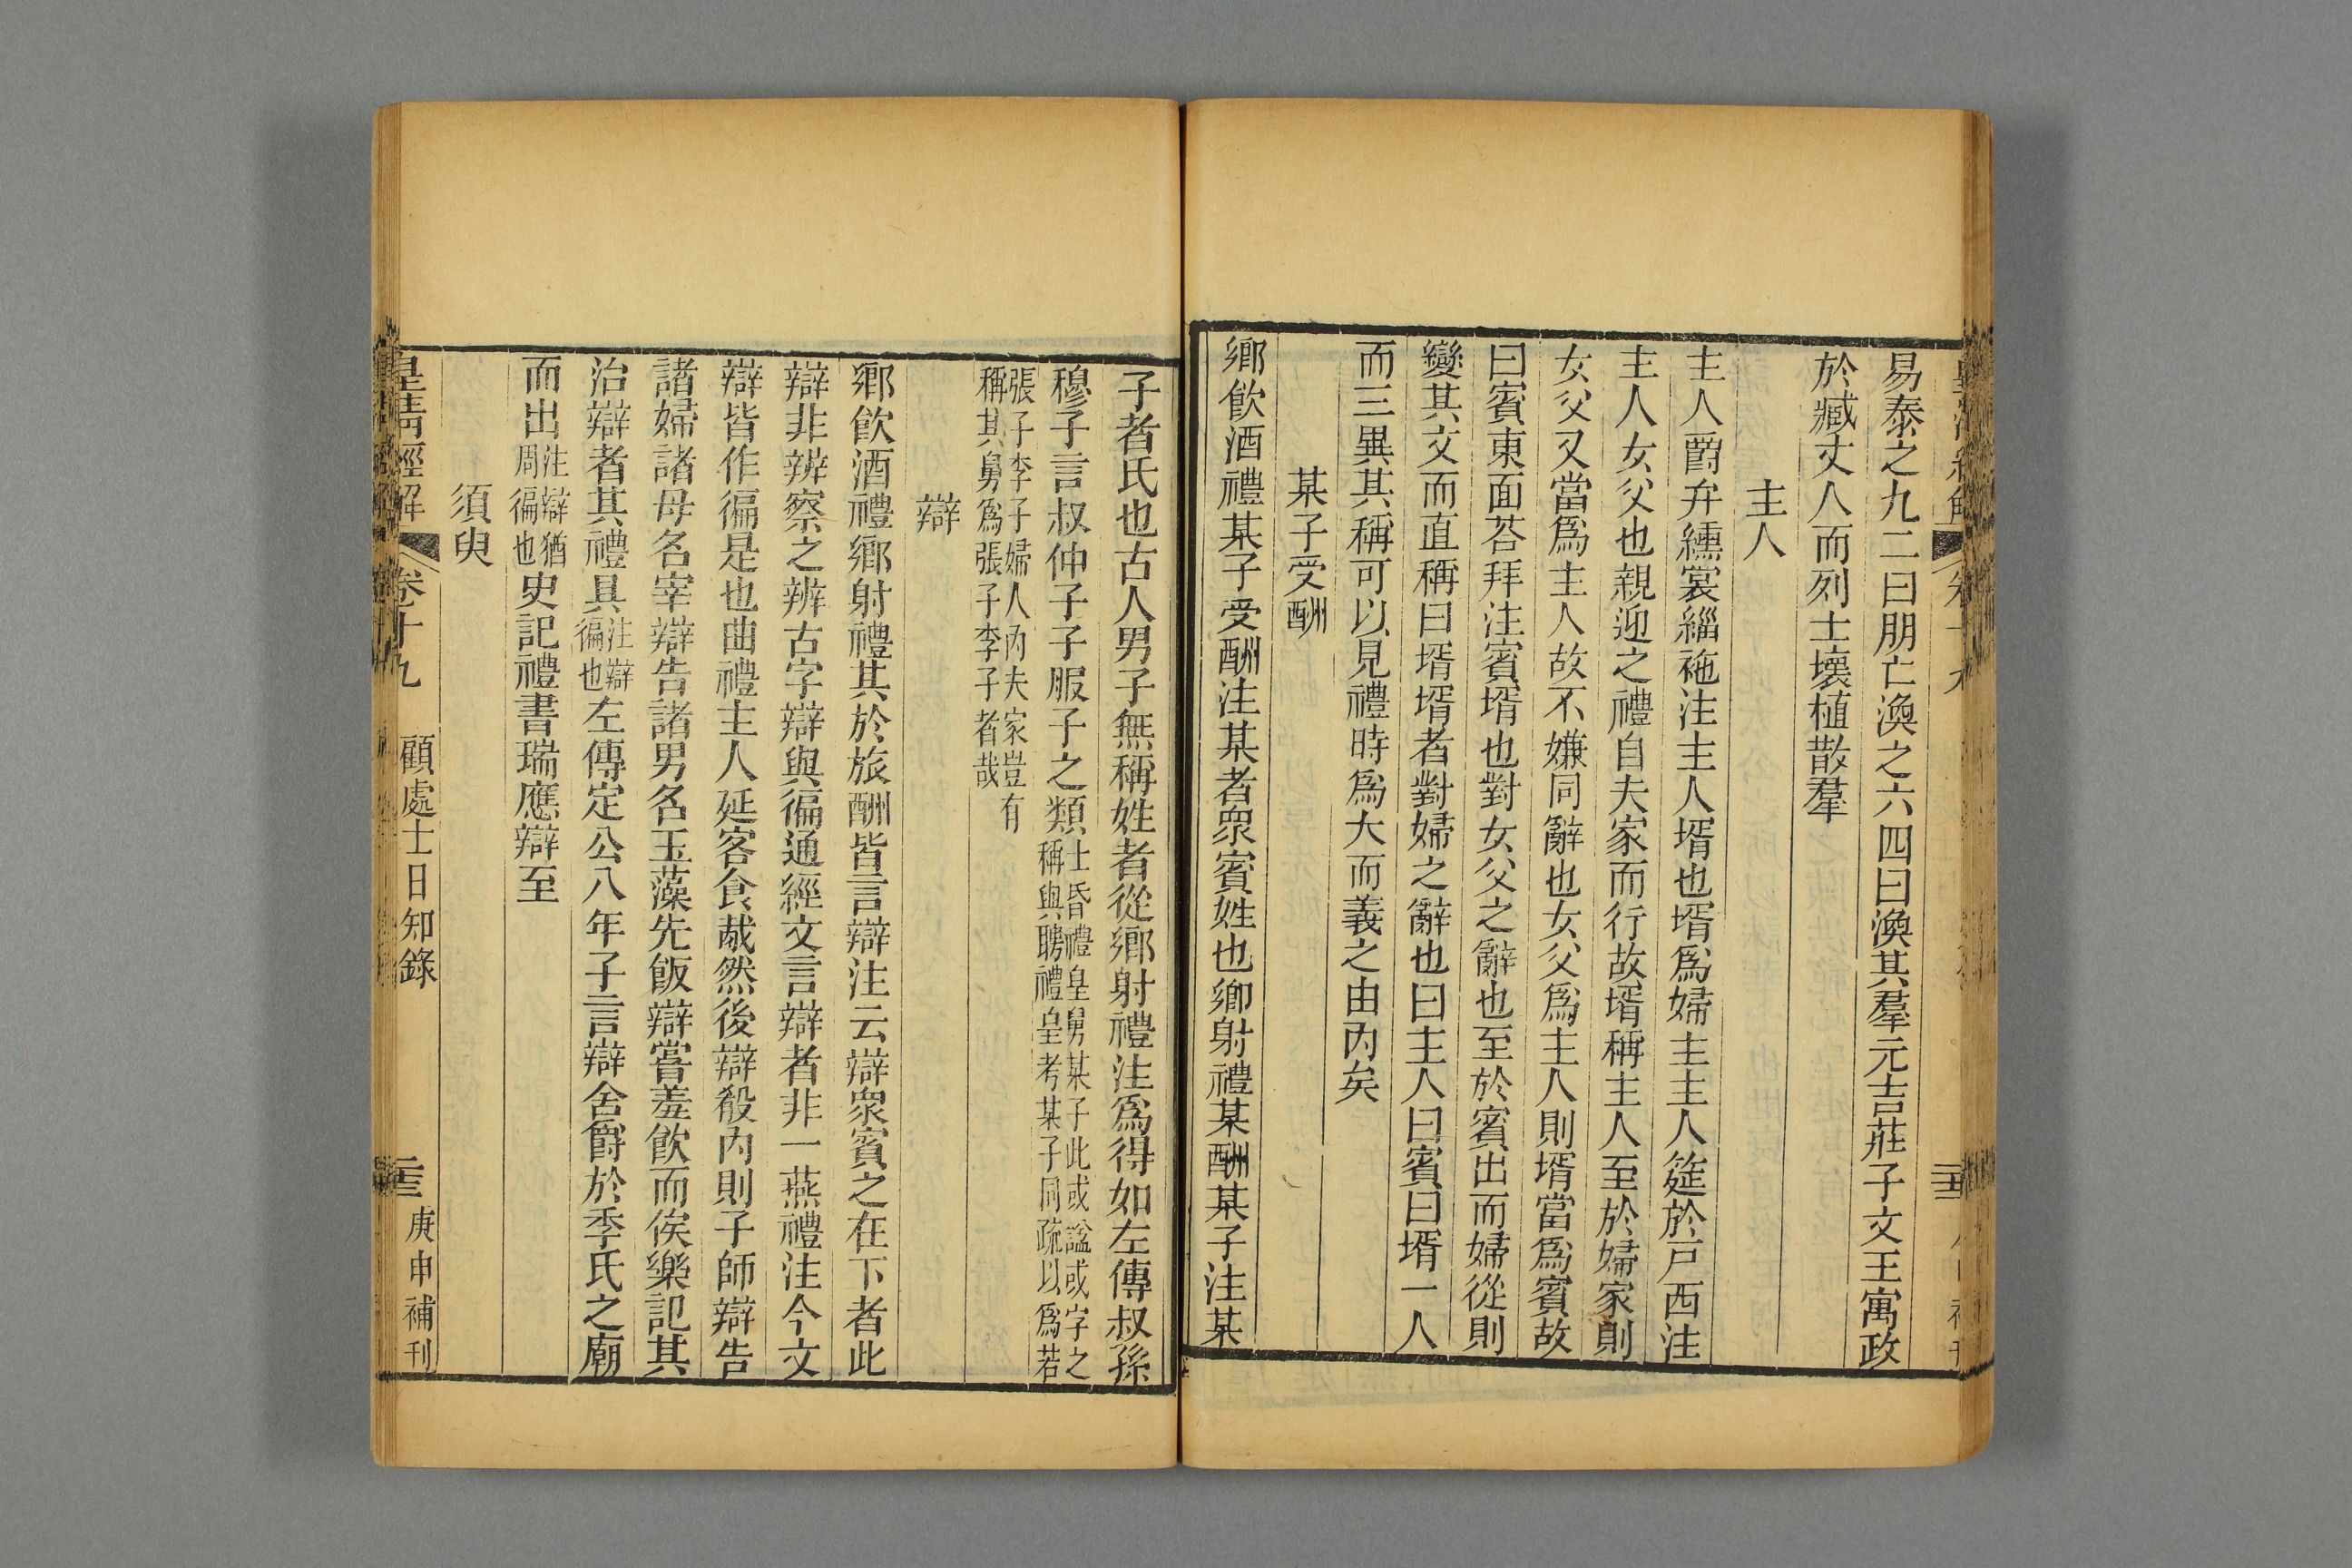 易泰之九二曰朋亡渙之六四曰渙其羣元吉莊子文王寓政
於臧丈人而列士壞植散羣
主人
主人爵弁纁裳緇袘注主人壻也壻爲婦主主人筵於戸西注
主人女父也親迎之禮自夫家而行故壻稱主人至於婦家則
女父又當爲主人故不嫌同辭也女父爲主人則壻當爲賓故
曰賓東面荅拜注賓壻也對女父之辭也至於賓出而婦從則
變其文而直稱曰壻壻者對婦之辭也曰主人曰賓曰壻一人
而三異其稱可以見禮時爲大而義之由内矣
某子受酬
鄉飲酒禮某子受酬注某者衆賓姓也鄉射禮某酬某子注某
子者氏也古人男子無稱姓者從鄉射禮注爲得如左傳叔孫
穆子言叔仲子子服子之類士昏禮皇舅某子此或諡或字之
稱與聘禮皇考某子同疏以爲若
張子李子婦人内夫家豈有
稱其舅爲張子李子者哉
辯
鄉飲酒禮鄉射禮其於旅酬皆言辯注云辯衆賓之在下者此
辯非辨察之辨古字辯與徧通經文言辯者非一燕禮注今文
辯皆作徧是也曲禮主人延客食胾然後辯殽内則子師辯告
諸婦諸母名宰辯告諸男名玉藻先飯辯嘗羞飲而俟樂記其
治辯者其禮具注辯徧也左傳定公八年子言辯舍爵於季氏之廟
而出注辯猶周徧也史記禮書瑞應辯至
須臾
皇清經解 卷十九 顧處士日知錄 庚申補刊